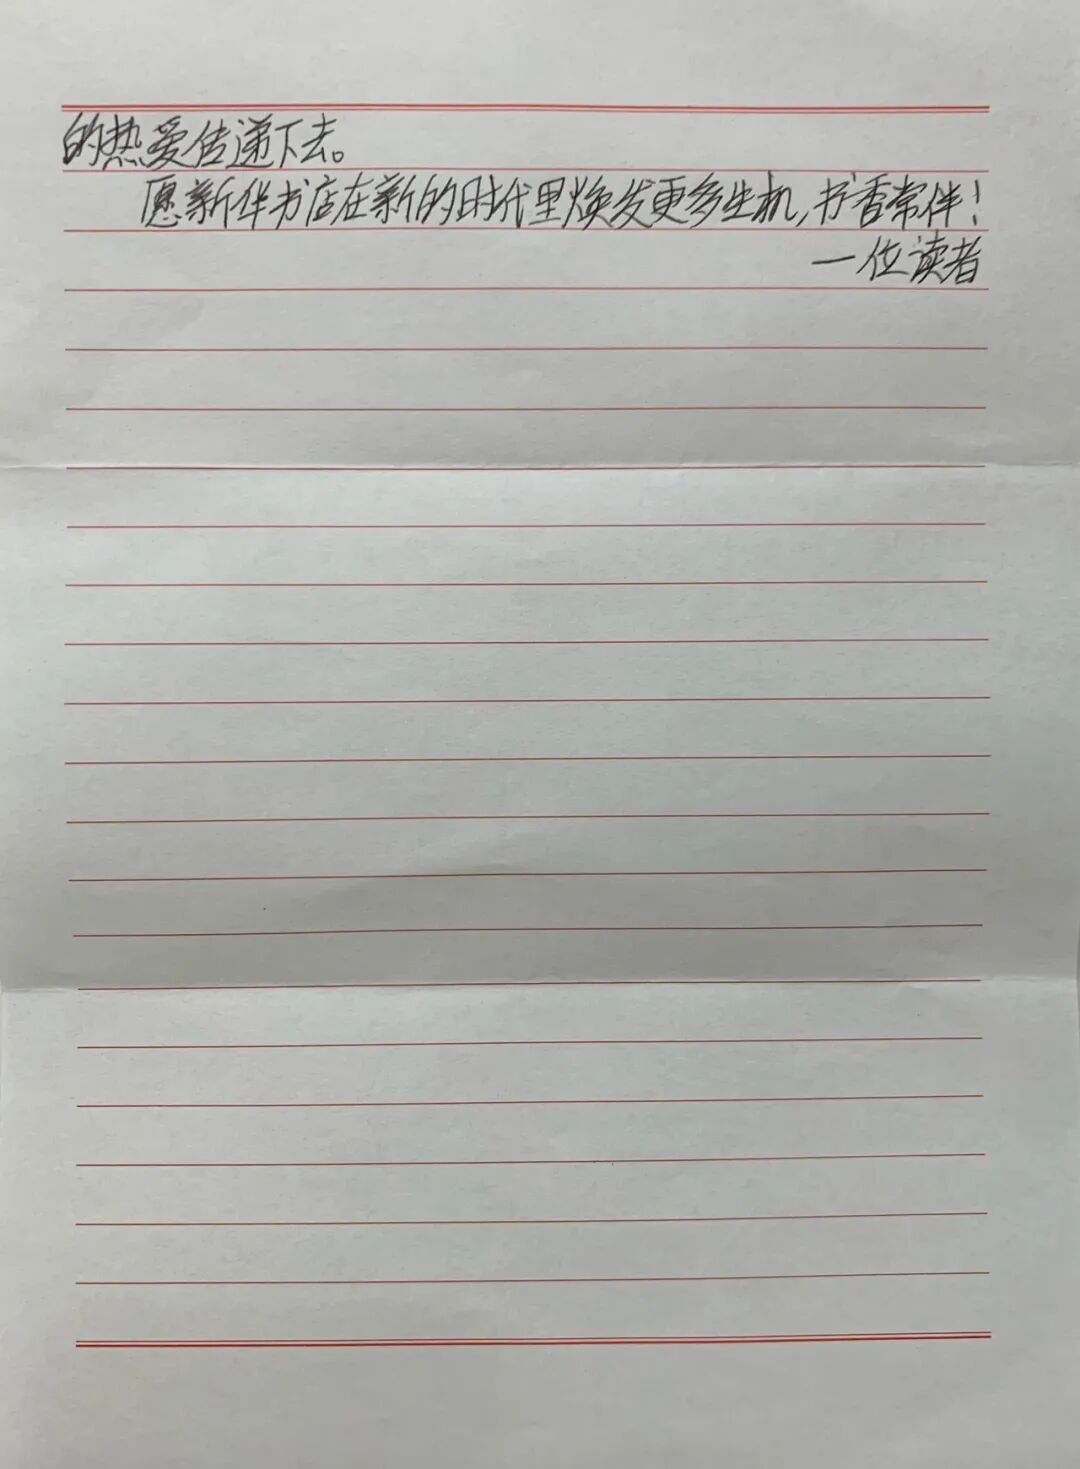 的热爱传递下去。
愿新华书店在新的时代里焕发更多生机,书香常伴!
一位读者